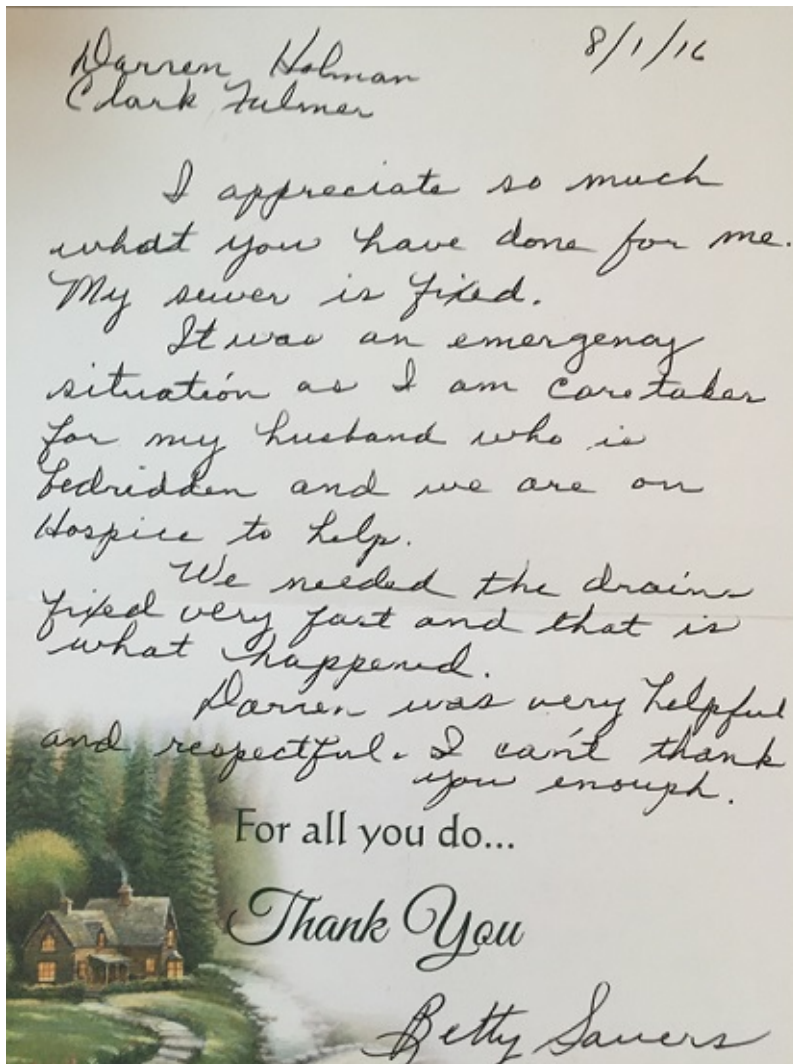 8/1/16
Darren Holman
Clark Fulmer
I appreciate so much
what you have done for me.
My sewer is fixed.
It was an emergency
situation as I am caretaker
for my husband who is
bedridden and we are on
Hospice to help.
We needed the drain
fixed very fast and that is
what happened.
Darren was very helpful
and respectful. I can't thank
you enough.
For all you do...
Thank You
Betty Sauers